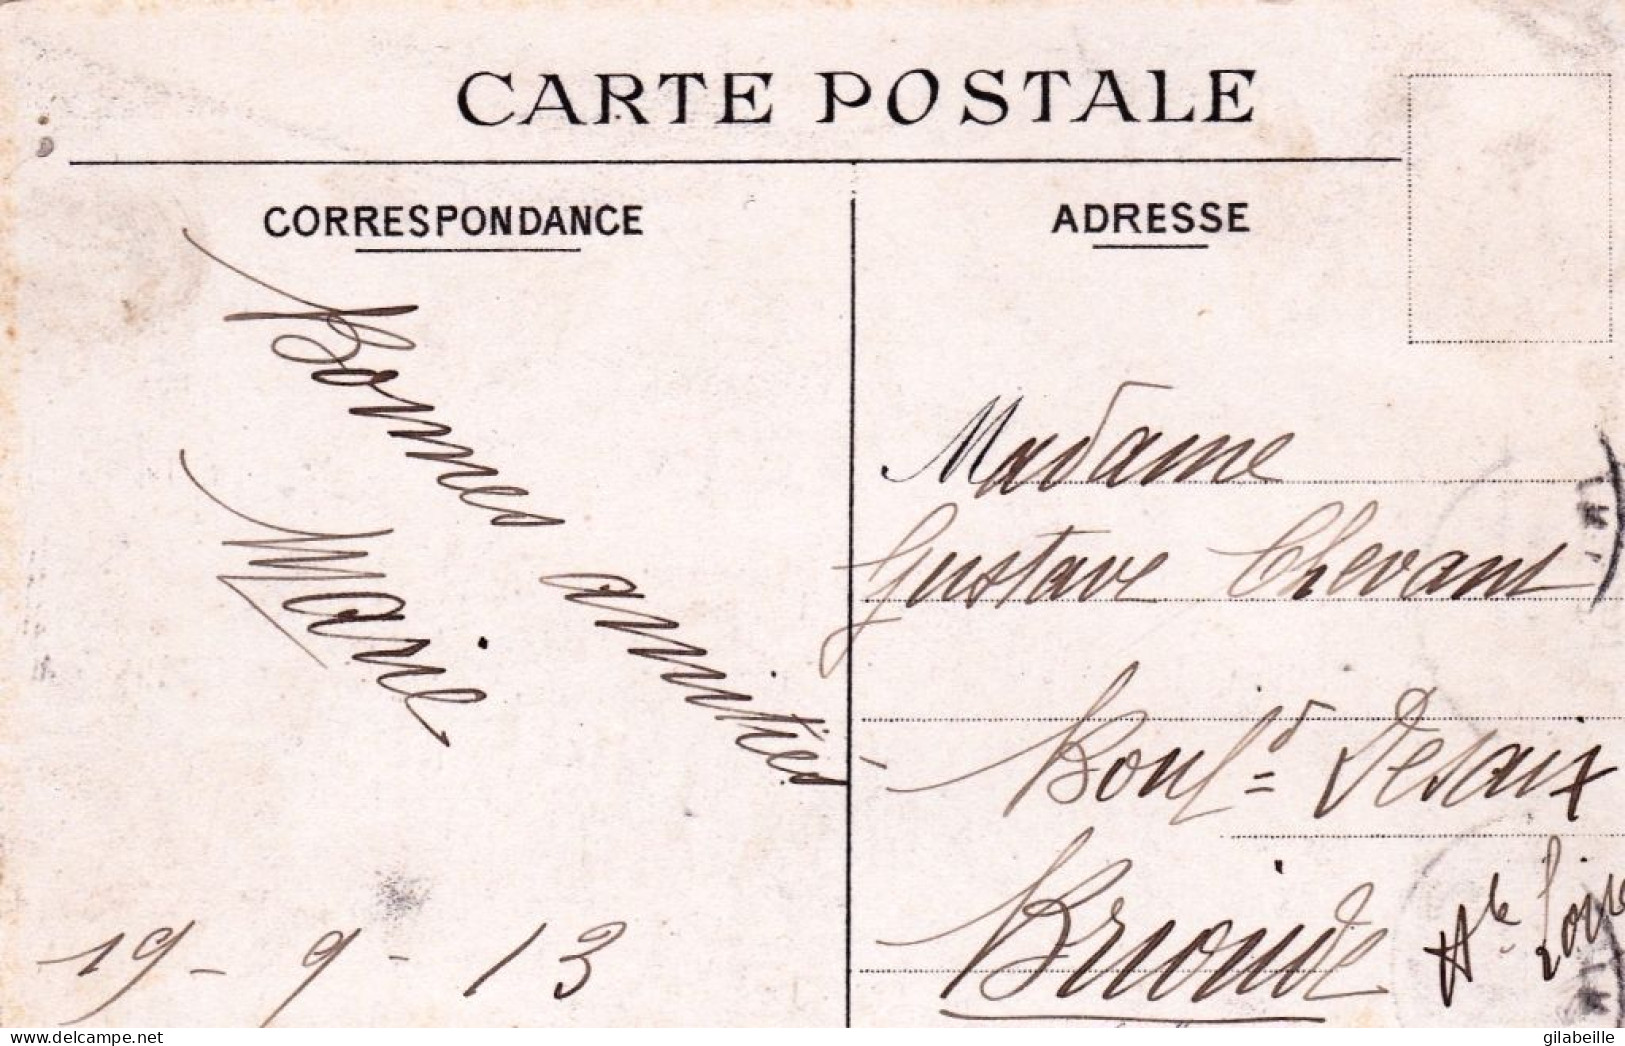 CARTE POSTALE
CORRESPONDANCE
ADRESSE
Bonnes amitiés
Marie
19 - 9 - 13
Madame
Gustave Chevant
Boul.d Desaix
Brioude
Hte Loire
www.delcampe.net
gilabeille